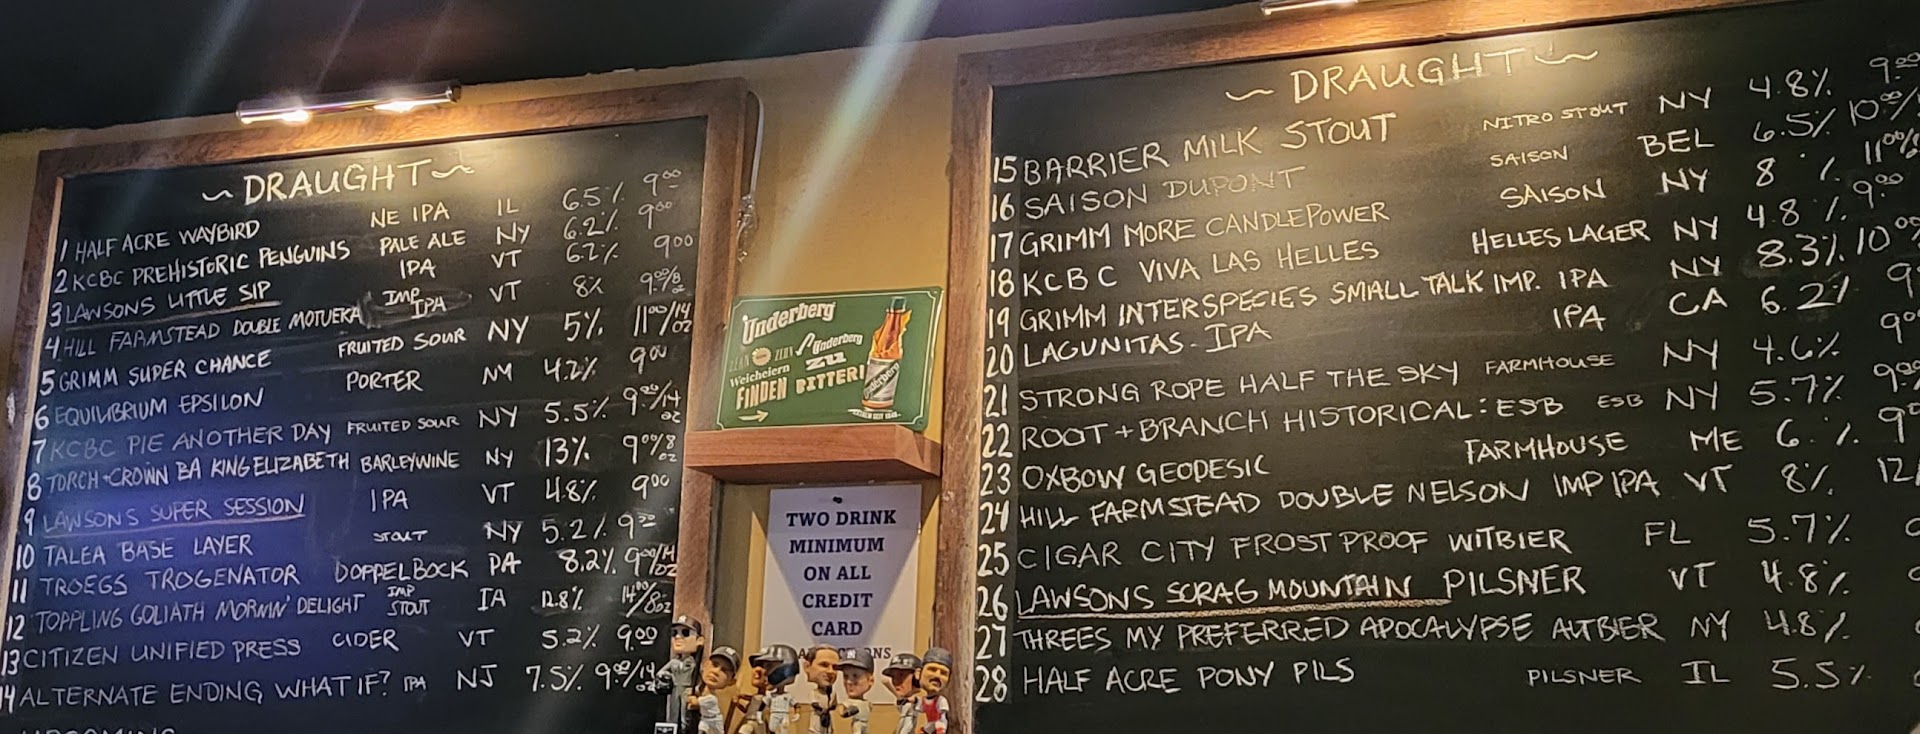 ~ DRAUGHT ~
1 HALF ACRE WAYBIRD NE IPA IL 6.5% 9.00
2 KCBC PREHISTORIC PENGUINS PALE ALE NY 6.2% 9.00
3 LAWSONS LITTLE SIP IPA VT 6.2% 9.00
4 HILL FARMSTEAD DOUBLE MOTUEKA IMP IPA VT 8% 9.00/8oz
5 GRIMM SUPER CHANCE FRUITED SOUR NY 5% 11.00/14oz
6 EQUILIBRIUM EPSILON PORTER NY 4.2% 9.00
7 KCBC PIE ANOTHER DAY FRUITED SOUR NY 5.5% 9.00/14oz
8 TORCH+CROWN BA KING ELIZABETH BARLEYWINE NY 13% 9.00/8oz
9 LAWSONS SUPER SESSION IPA VT 4.8% 9.00
10 TALEA BASE LAYER STOUT NY 5.2% 9.00
11 TROEGS TROGENATOR DOPPELBOCK PA 8.2% 9.00/14oz
12 TOPPLING GOLIATH MORNIN' DELIGHT IMP STOUT IA 12.8% 14.00/8oz
13 CITIZEN UNIFIED PRESS CIDER VT 5.2% 9.00
14 ALTERNATE ENDING WHAT IF? IPA NJ 7.5% 9.00/14oz
UPCOMING
Underberg
Underberg
Weicheiern ZU
FINDEN BITTER!
Underberg
TWO DRINK
MINIMUM
ON ALL
CREDIT
CARD
~ DRAUGHT ~
15 BARRIER MILK STOUT NITRO STOUT NY 4.8% 9.00
16 SAISON DUPONT SAISON BEL 6.5% 10.00/
17 GRIMM MORE CANDLEPOWER SAISON NY 8% 11.00/
18 KCBC VIVA LAS HELLES HELLES LAGER NY 4.8% 9.00
19 GRIMM INTERSPECIES SMALL TALK IMP. IPA NY 8.3% 10.00
20 LAGUNITAS - IPA IPA CA 6.2% 9
21 STRONG ROPE HALF THE SKY FARMHOUSE NY 4.6% 9.00
22 ROOT + BRANCH HISTORICAL: ESB ESB NY 5.7% 9.00
23 OXBOW GEODESIC FARMHOUSE ME 6.% 9
24 HILL FARMSTEAD DOUBLE NELSON IMP IPA VT 8% 12/
25 CIGAR CITY FROST PROOF WITBIER FL 5.7%
26 LAWSONS SCRAG MOUNTAIN PILSNER VT 4.8%
27 THREES MY PREFERRED APOCALYPSE ALTBIER NY 4.8%
28 HALF ACRE PONY PILS PILSNER IL 5.5%